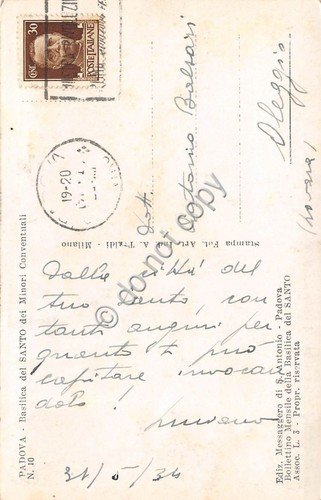 30
CENT.
POSTE ITALIANE
19-20
PADOVA - Basilica del SANTO dei Minori Conventuali
N. 10
Dalla città del
tuo santo, con
tanti auguri per
quanto ti può
capitare invocan
dolo!
31/5/34
Stampa Fot. Art. Ed. A. Traldi - Milano
Dott.
Antonio Balsari
Oleggio
(Novara)
Ediz. Messaggero di S. Antonio - Padova
Bollettino Mensile della Basilica del SANTO
Assoc. L. 3 - Propr. riservata
do not copy